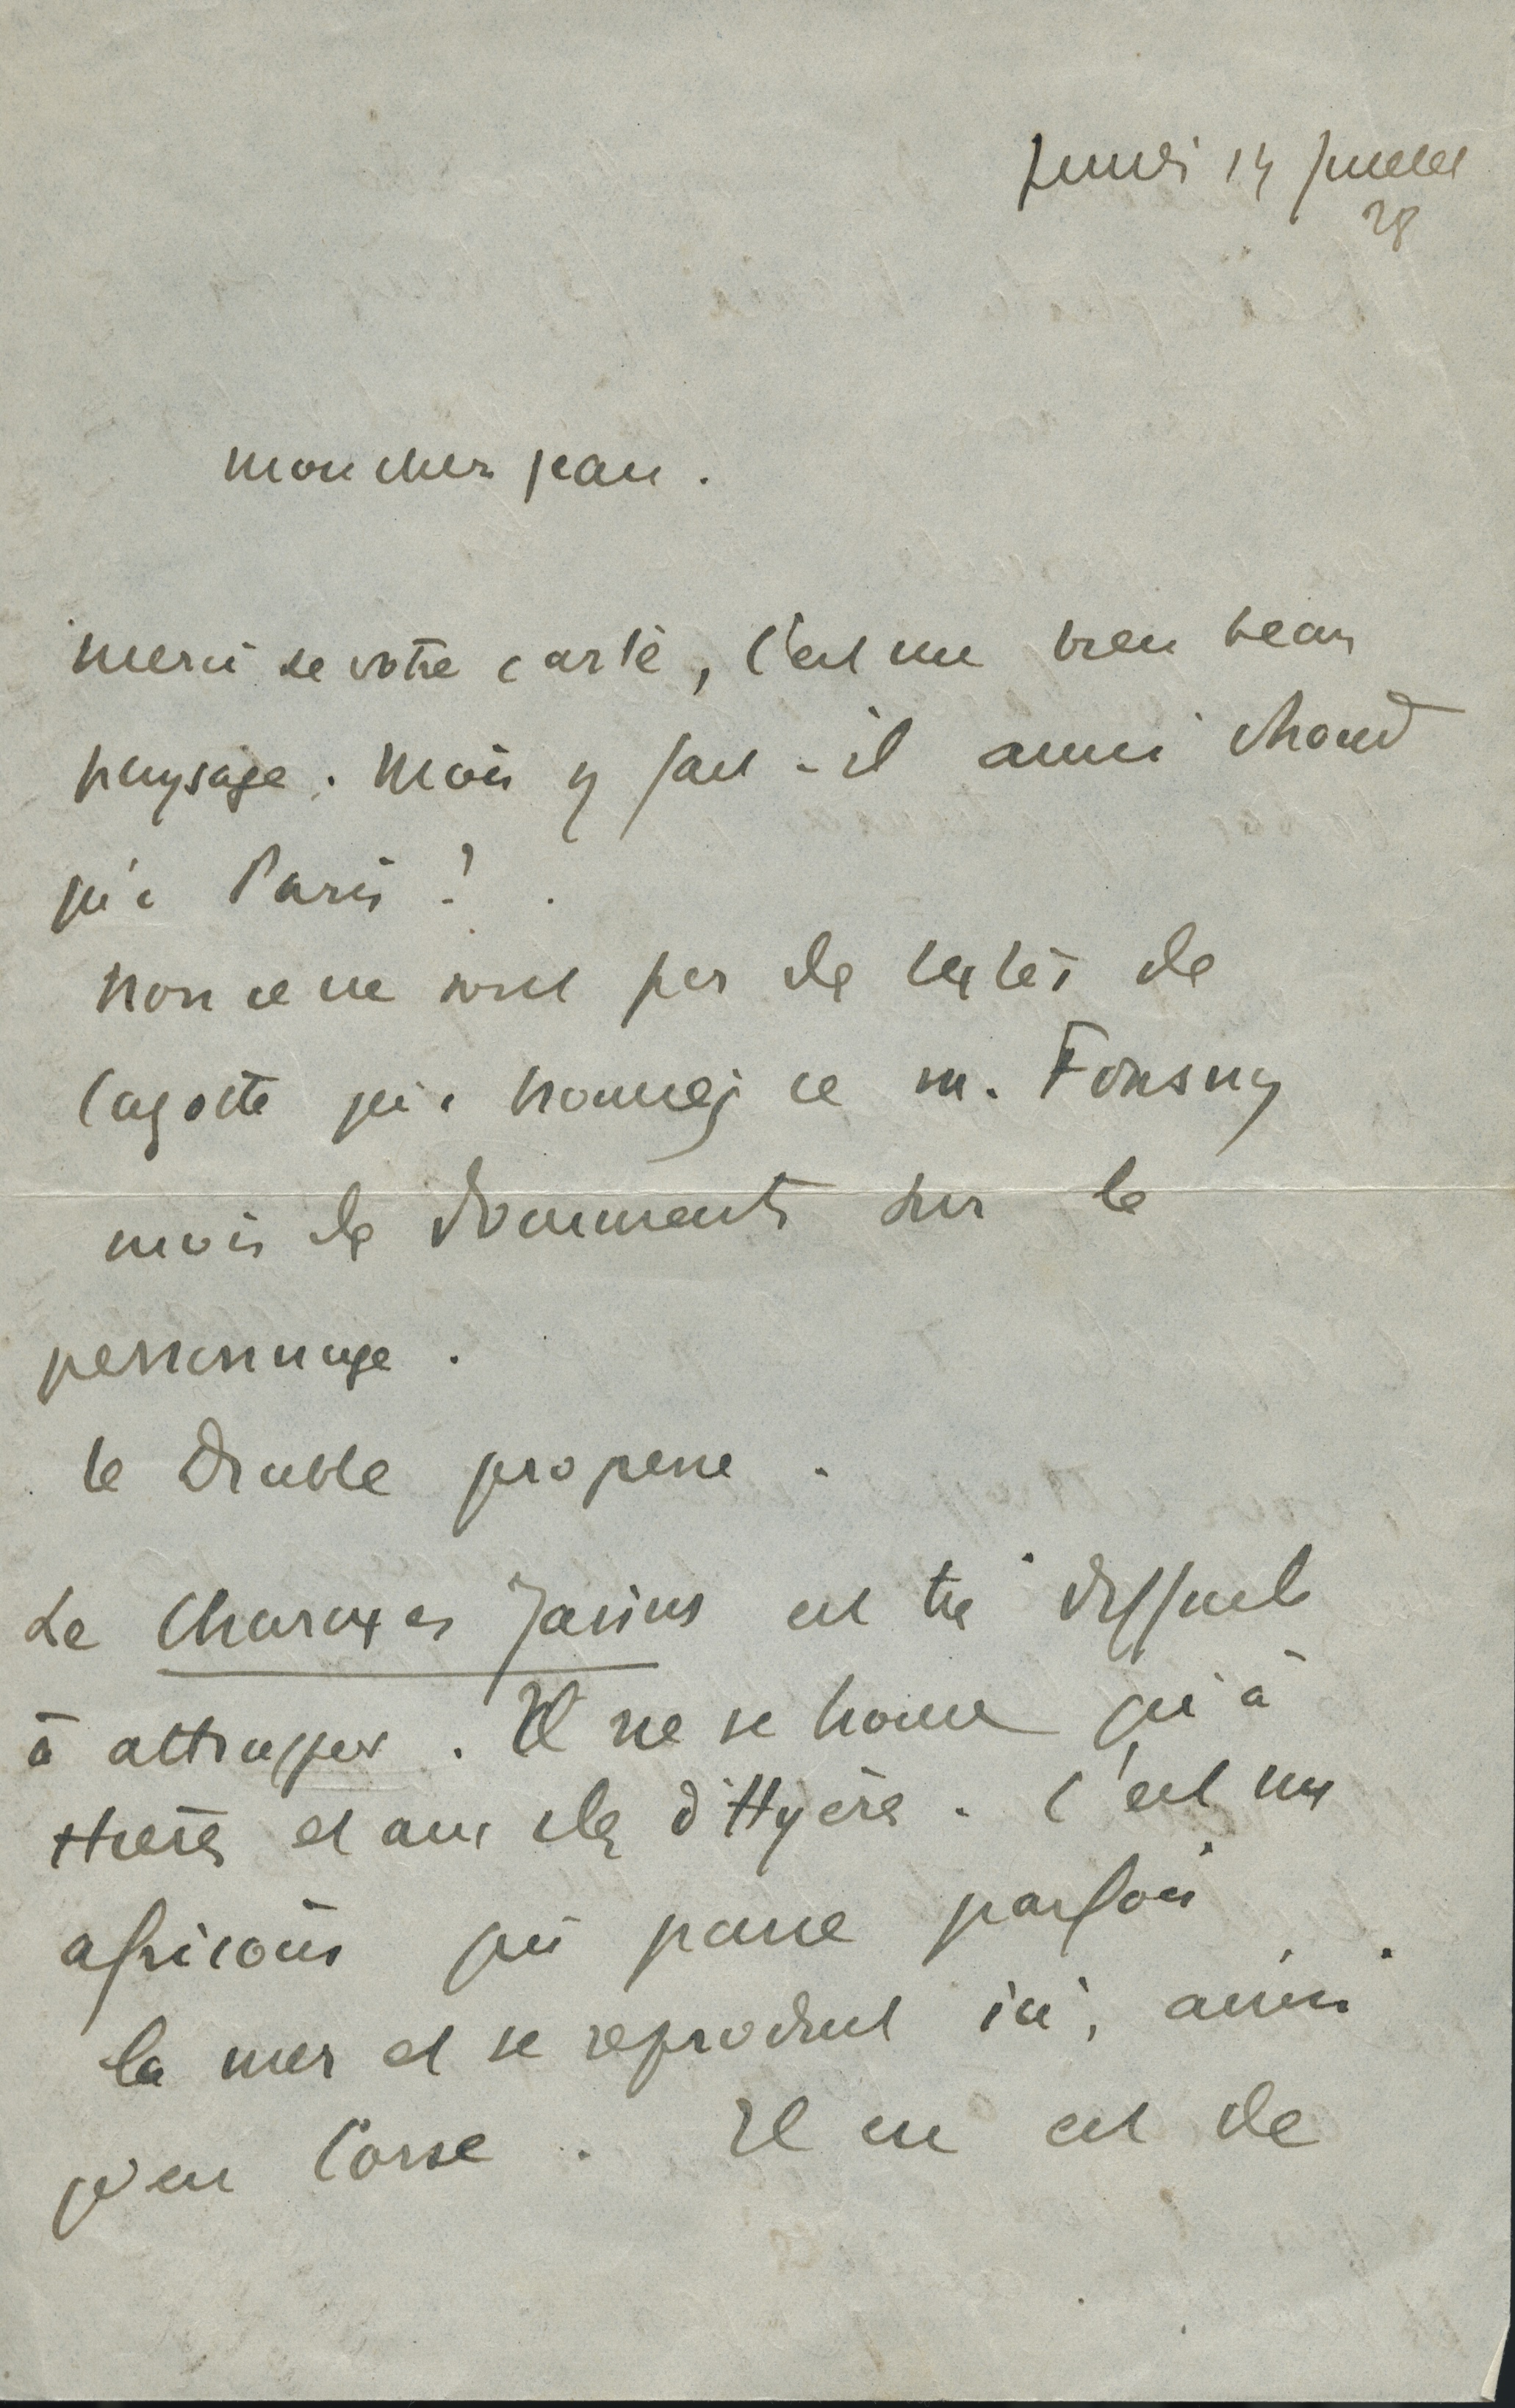 Lundi 14 Juillet
28
Mon cher Jean.
Merci de votre carte, c'est un bien beau
paysage. Mais y fait-il aussi chaud
qu'à Paris ?
Non ce ne sont pas des textes de
qu'a ce M. Fonsny
mais des documents sur le
personnage.
le Diable propose.
Le Charaxes Jasius est très difficile
à attrapper. Il ne se trouve qu'à
et aux îles d'Hyères. C'est un
africain qui passe parfois
la mer et se reproduit ici, ainsi
qu'en Corse. Il en est de